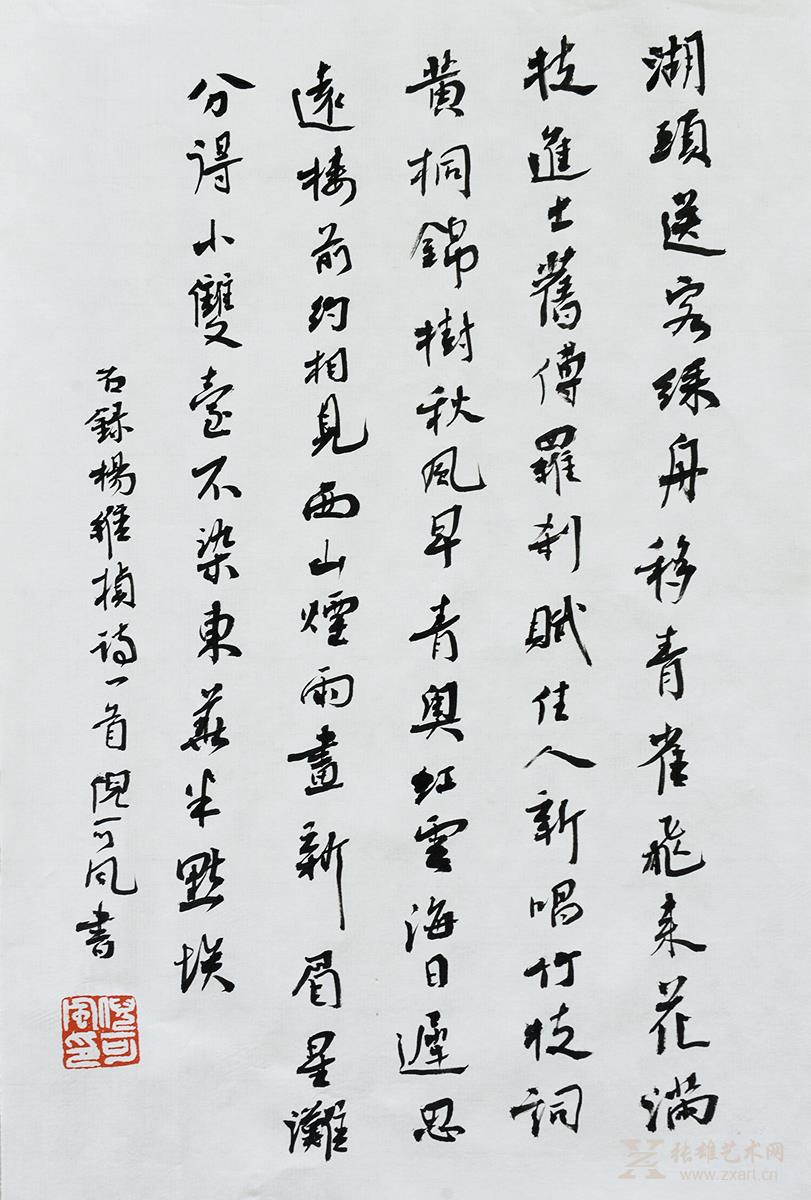 湖頭送客綵舟移青雀飛來花滿
枝進士舊傳羅剎賦佳人新唱竹枝詞
黄桐錦樹秋風早青奥紅雲海日遲思
遠樓前約相見西山煙雨畫新眉星灘
分得小雙臺不染東華半點埃
右錄楊維楨詩一首倪可风書
倪可風印
张雄艺术网
www.zxart.cn